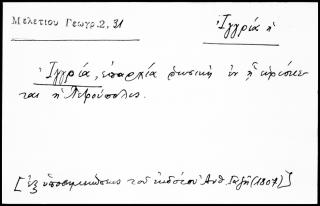 Μελετίου Γεωγρ. 2, 31
Ἰγγρία ἡ
Ἰγγρία, ἐπαρχία ῥωσικὴ ἐν ᾗ εὑρίσκε-
ται ἡ Πετρούπολις.
[ἐξ ὑποσημειώσεως τοῦ ἐκδότου Ἀνθ. Γαζῆ (1807)]